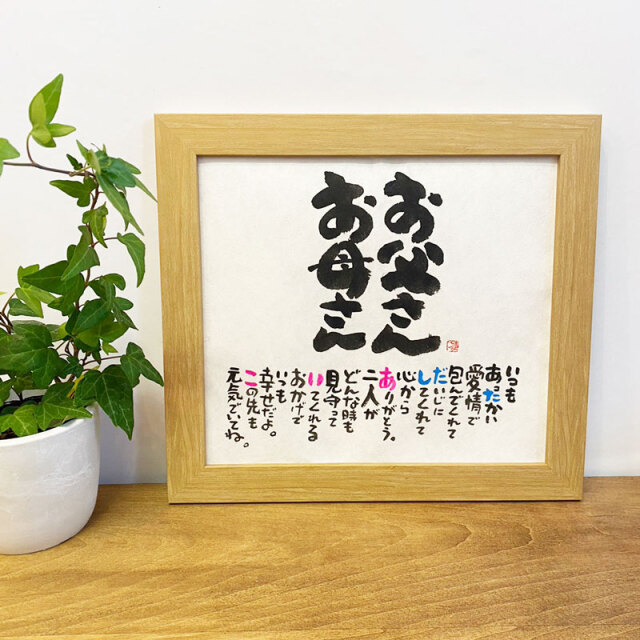 お父さん
お母さん
いつも
あったかい
愛情で
包んでくれて
だいじに
してくれて
心から
ありがとう。
二人が
どんな時も
見守って
いてくれる
おかげで
いつも
幸せだよ。
この先も
元気でいてね。